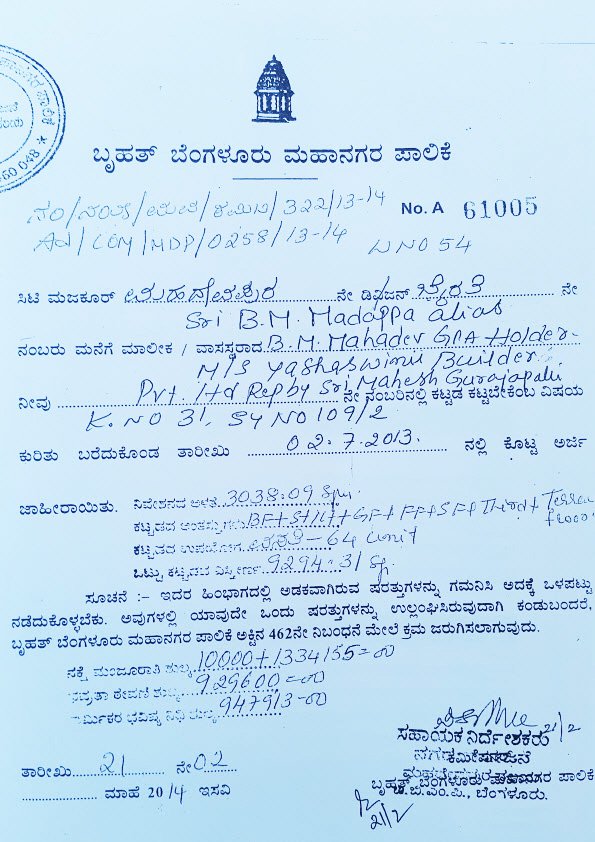 ಮಹಾನಗರ ಪಾಲಿಕೆ
ಬೃಹತ್ ಬೆಂಗಳೂರು ಮಹಾನಗರ ಪಾಲಿಕೆ
322/13-14
No. A 61005
Ad/COM/MDP/0258/13-14 W NO 54
ಸಿಟಿ ಮಜಕೂರ್ ಮಹದೇವಪುರ ನೇ ಡಿವಿಜನ್ ನೇ
Sri B.M. Madappa alias
ನಂಬರು ಮನೆಗೆ ಮಾಲೀಕ / ವಾಸಸ್ಥರಾದ B.M. Mahadev GPA Holder
M/S Yashaswini Builder
Pvt. Ltd Rep by Sri Mahesh Gurajapalli
ನೀವು ನೇ ನಂಬರಿನಲ್ಲಿ ಕಟ್ಟಡ ಕಟ್ಟಬೇಕೆಂಬ ವಿಷಯ
K. NO 31, SY NO 109/2
ಕುರಿತು ಬರೆದುಕೊಂಡ ತಾರೀಖು 02.7.2013. ನಲ್ಲಿ ಕೊಟ್ಟ ಅರ್ಜಿ
ಜಾಹೀರಾಯಿತು. ನಿವೇಶನದ ಅಳತೆ 3038.09 Sqm.
ಕಟ್ಟಡದ ಅಂತಸ್ತುಗಳು BF+Stilt+GF+FF+SF+Third+Terrace floor
ಕಟ್ಟಡದ ಉಪಯೋಗ ವಸತಿ - 64 unit
ಒಟ್ಟು ಕಟ್ಟಡದ ವಿಸ್ತೀರ್ಣ 9294.31
ಸೂಚನೆ :- ಇದರ ಹಿಂಭಾಗದಲ್ಲಿ ಅಡಕವಾಗಿರುವ ಷರತ್ತುಗಳನ್ನು ಗಮನಿಸಿ ಅದಕ್ಕೆ ಒಳಪಟ್ಟು
ನಡೆದುಕೊಳ್ಳಬೇಕು. ಅವುಗಳಲ್ಲಿ ಯಾವುದೇ ಒಂದು ಷರತ್ತುಗಳನ್ನು ಉಲ್ಲಂಘಿಸಿರುವುದಾಗಿ ಕಂಡುಬಂದರೆ,
ಬೃಹತ್ ಬೆಂಗಳೂರು ಮಹಾನಗರ ಪಾಲಿಕೆ ಅಕ್ಟಿನ 462ನೇ ನಿಬಂಧನೆ ಮೇಲೆ ಕ್ರಮ ಜರುಗಿಸಲಾಗುವುದು.
ನಕ್ಷೆ ಮಂಜೂರಾತಿ ಶುಲ್ಕ 10000+1334155=00
ಶುಲ್ಕ 929600=00
ಕಾರ್ಮಿಕರ ಭವಿಷ್ಯ ನಿಧಿ ಶುಲ್ಕ 947913-00
21/2
ಸಹಾಯಕ ನಿರ್ದೇಶಕರು
ನಗರ ಯೋಜನೆ
ಕಮಿಷನರ್
ತಾರೀಖು 21 ನೇ 02
ಬೃಹತ್ ಬೆಂಗಳೂರು ಮಹಾನಗರ ಪಾಲಿಕೆ
ಮಾಹೆ 2014 ಇಸವಿ
ಬಿ.ಬಿ.ಎಂ.ಪಿ., ಬೆಂಗಳೂರು.
21/2